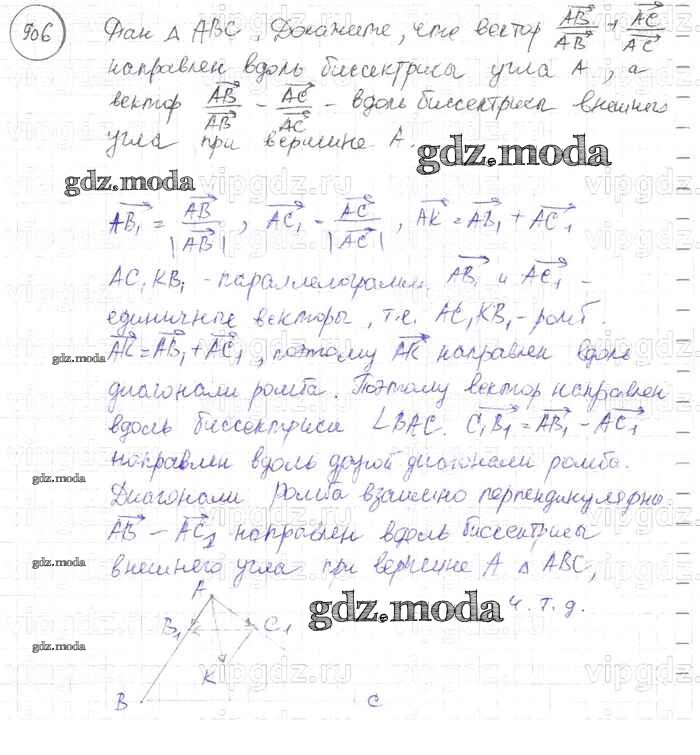 906
Дан △ ABC. Докажите, что вектор AB/AB + AC/AC
направлен вдоль биссектрисы угла A, а
вектор AB/AB - AC/AC - вдоль биссектрисы внешнего
угла при вершине A.
gdz.moda
gdz.moda
AB₁ = AB/|AB|, AC₁ - AC/|AC|, AK = AB₁ + AC₁
AC₁KB₁ - параллелограмм. AB₁ и AC₁ -
единичные векторы, т.е. AC₁KB₁ - ромб.
AK = AB₁ + AC₁, поэтому AK направлен вдоль
gdz.moda
диагонали ромба. Поэтому вектор направлен
вдоль биссектрисы ∠BAC. C₁B₁ = AB₁ - AC₁
направлен вдоль другой диагонали ромба.
gdz.moda
Диагонали ромба взаимно перпендикулярны.
AB - AC₁ направлен вдоль биссектрисы
gdz.moda
внешнего угла при вершине A △ ABC,
ч.т.д.
gdz.moda
A
B₁ C₁
gdz.moda
K
B C
vipgdz.ru